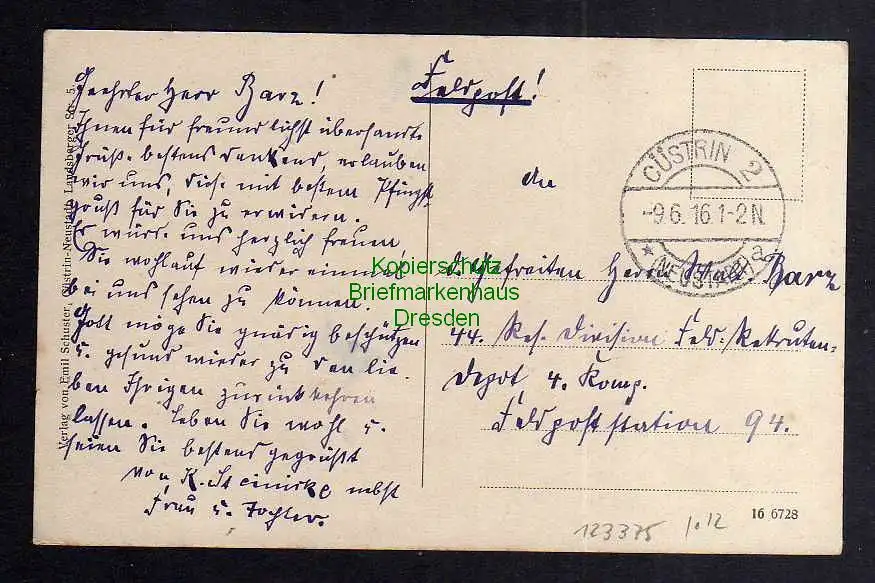 Geehrter Herr Barz!
Ihnen für freundlichst übersandte
Grüße bestens dankend, erlauben
wir uns, diese mit bestem Pfingst-
gruß für Sie zu erwidern.
Es würde uns herzlich freuen
Sie wohlauf wieder einmal
bei uns sehen zu können.
Gott möge Sie gnädig beschützen
u. gesund wieder zu den lie-
ben Ihrigen zurückkehren
lassen. Leben Sie wohl u.
seien Sie bestens gegrüßt
von K. Steinicke nebst
Frau u. Tochter.
Feldpost!
An
d. Gefreiten Herrn Barz
44. Res. Division Feld-Rekruten-
Depot 4. Komp.
Feldpoststation 94.
CÜSTRIN 2
-9.6.16.1-2N.
* (NEUSTADT) a
Kopierschutz
Briefmarkenhaus
Dresden
Verlag von Emil Schuster, Cüstrin-Neustadt, Landsberger Str. 5.
16 6728
123375